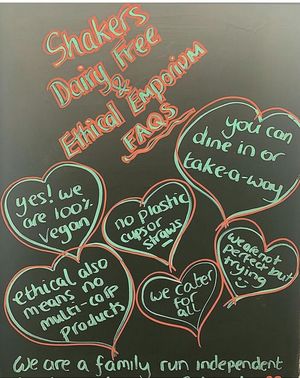 Shakers
Dairy Free
&
Ethical Emporium
FAQS
you can
dine in or
take-a-way
yes! we
are 100%
vegan
no plastic
cups or
straws
we are not
perfect but
trying
ethical also
means no
multi-corp
products
we cater
for
all
We are a family run independent